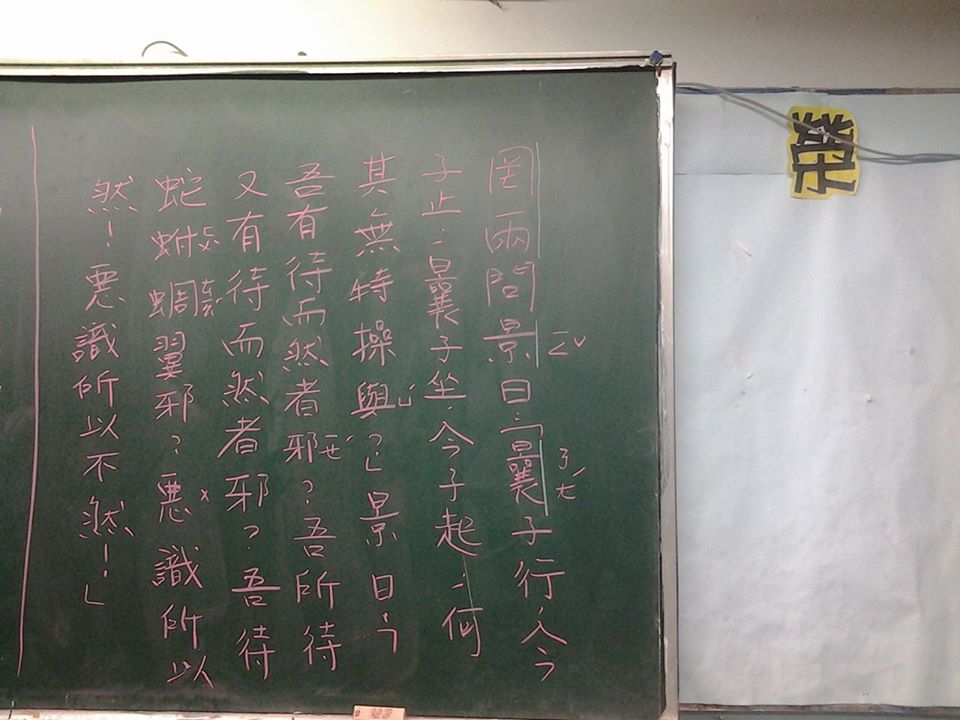 罔兩問景曰：「曩子行，今
ㄧㄥˇ
ㄋㄤˇ
子止；曩子坐，今子起；何
其無特操與？」景曰：「
ㄩˊ
吾有待而然者邪？吾所待
ㄧㄝˊ
又有待而然者邪？吾待
蛇蚹蜩翼邪？惡識所以
ㄨ
然！惡識所以不然！」